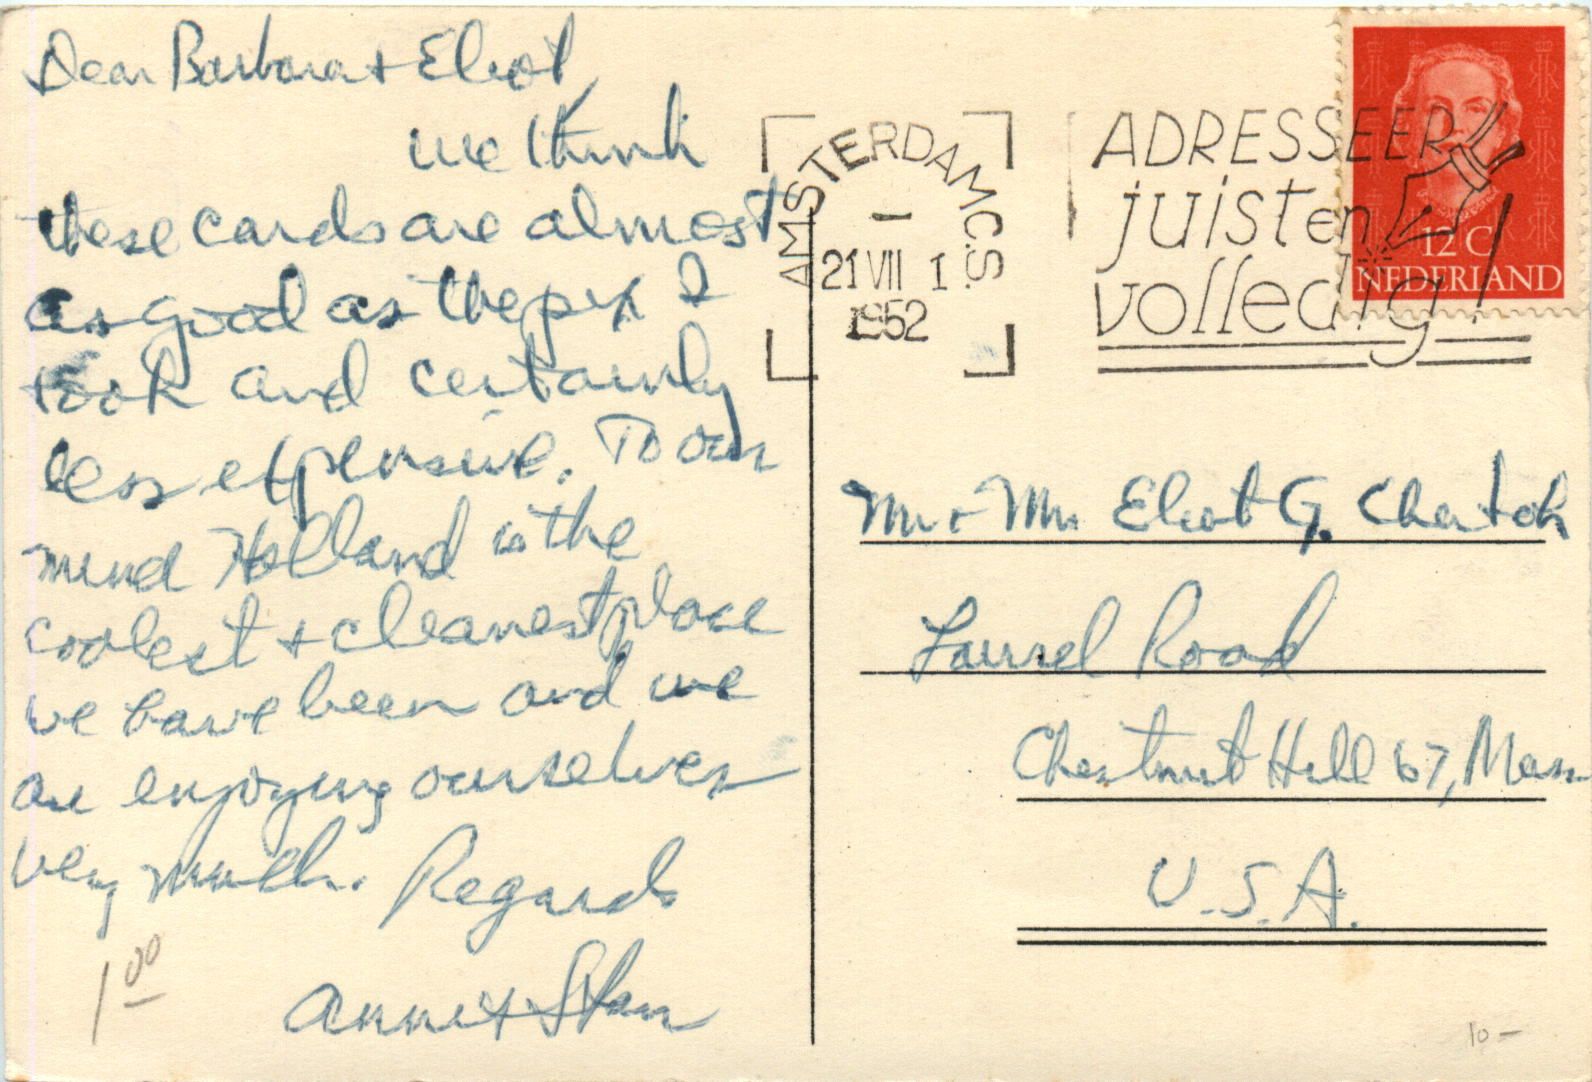 Dear Barbara + Eliot,
We think
these cards are almost
as good as the pix I
took and certainly
less expensive. To our
mind Holland is the
coolest + cleanest place
we have been and we
are enjoying ourselves
very much. Regards
Anne + Stan
1 00
AMSTERDAM C.S.
1
21 VII 1
1952
ADRESSEER
juist en
volledig!
12 C
NEDERLAND
Mr + Mrs Eliot G.
Laurel Road
Chestnut Hill 67, Mass
U.S.A.
10 –